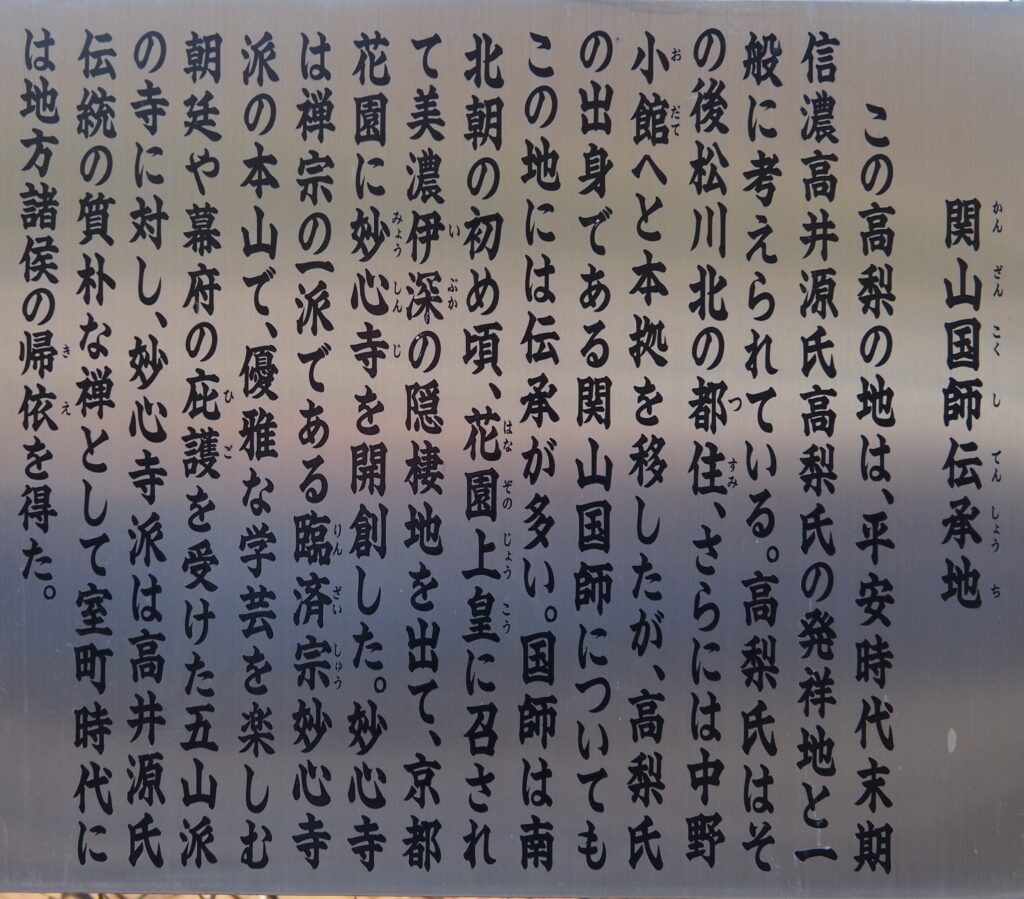 関山国師伝承地
かんざんこくしでんしょうち
この高梨の地は、平安時代末期
信濃高井源氏高梨氏の発祥地と一
般に考えられている。高梨氏はそ
の後松川北の都住、さらには中野
つすみ
小館へと本拠を移したが、高梨氏
おだて
の出身である関山国師についても
この地には伝承が多い。国師は南
北朝の初め頃、花園上皇に召され
はなぞのじょうこう
て美濃伊深の隠棲地を出て、京都
いぶか
花園に妙心寺を開創した。妙心寺
みょうしんじ
は禅宗の一派である臨済宗妙心寺
りんざいしゅう
派の本山で、優雅な学芸を楽しむ
朝廷や幕府の庇護を受けた五山派
ひご
の寺に対し、妙心寺派は高井源氏
伝統の質朴な禅として室町時代に
は地方諸侯の帰依を得た。
きえ